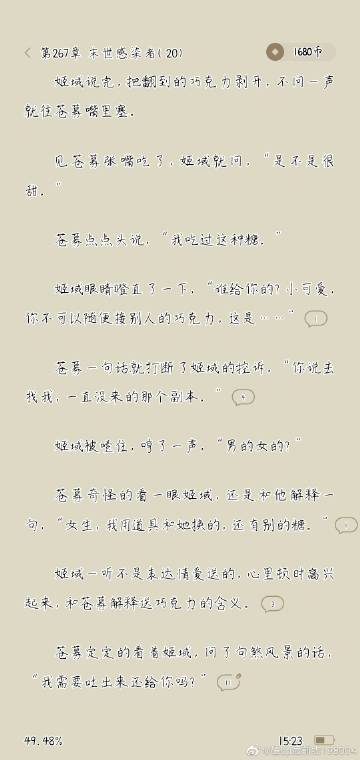 第267章 末世感染者(20)
1680币
姬域说完，把翻到的巧克力剥开，不问一声
就往苍慕嘴里塞。
见苍慕张嘴吃了，姬域就问，“是不是很
甜。”
苍慕点点头说，“我吃过这种糖。”
姬域眼睛瞪直了一下，“谁给你的？小可爱，
你不可以随便接别人的巧克力，这是……” 1
苍慕一句话就打断了姬域的控诉，“你说去
找我，一直没来的那个副本。”
姬域被噎住，哼了一声，“男的女的？”
苍慕奇怪的看一眼姬域，还是和他解释一
句，“女生，我用道具和她换的，还有别的糖。”
姬域一听不是表达情爱送的，心里顿时高兴
起来，和苍慕解释送巧克力的含义。 3
苍慕定定的看着姬域，问了句煞风景的话，
“我需要吐出来还给你吗？”
49.48%
15:23